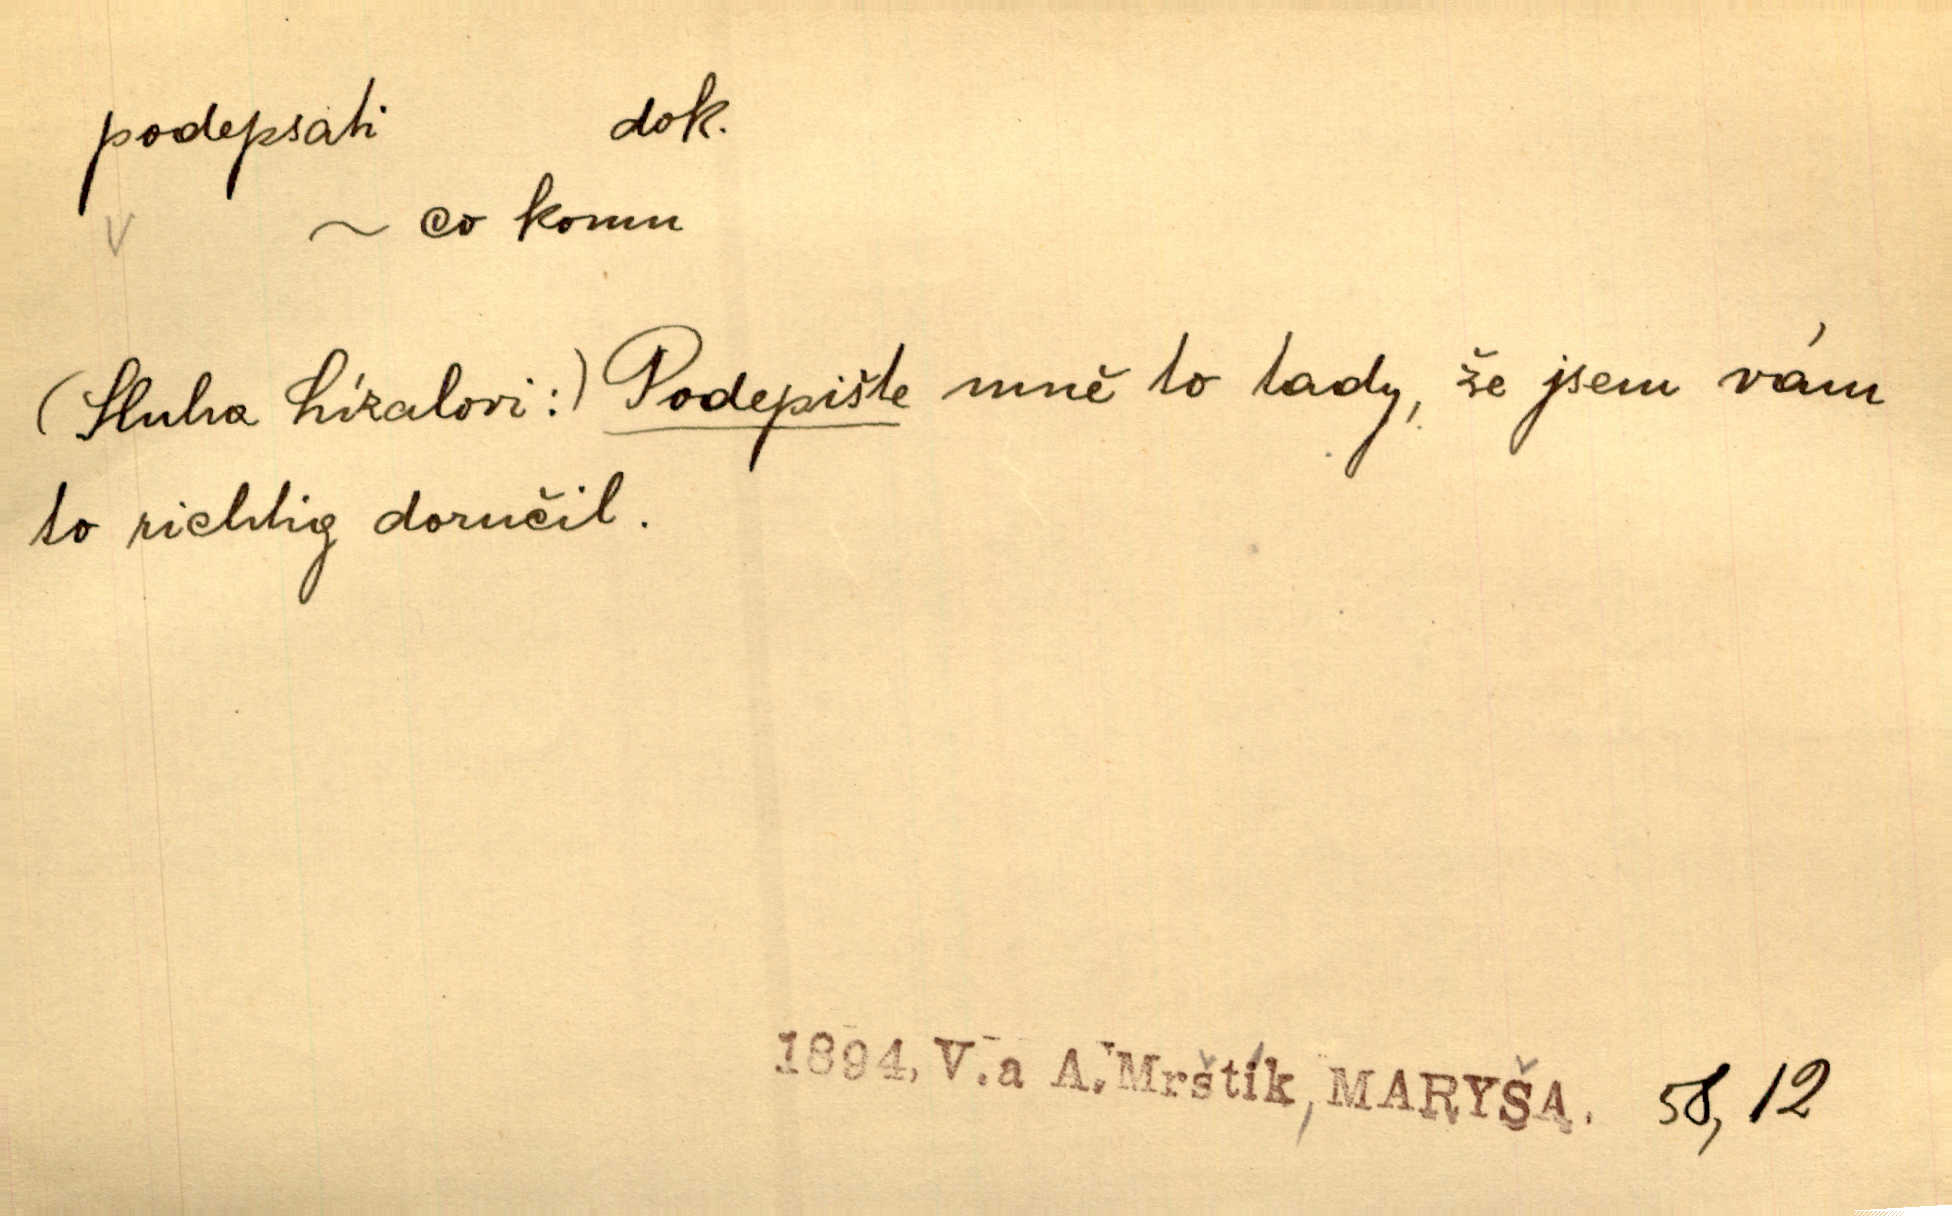 podepsati dok.
~ co komu
(Sluha Lízalovi:) Podepište mně to tady, že jsem vám
to richtig doručil.
1894, V. a A. Mrštík, MARYŠA. 58, 12